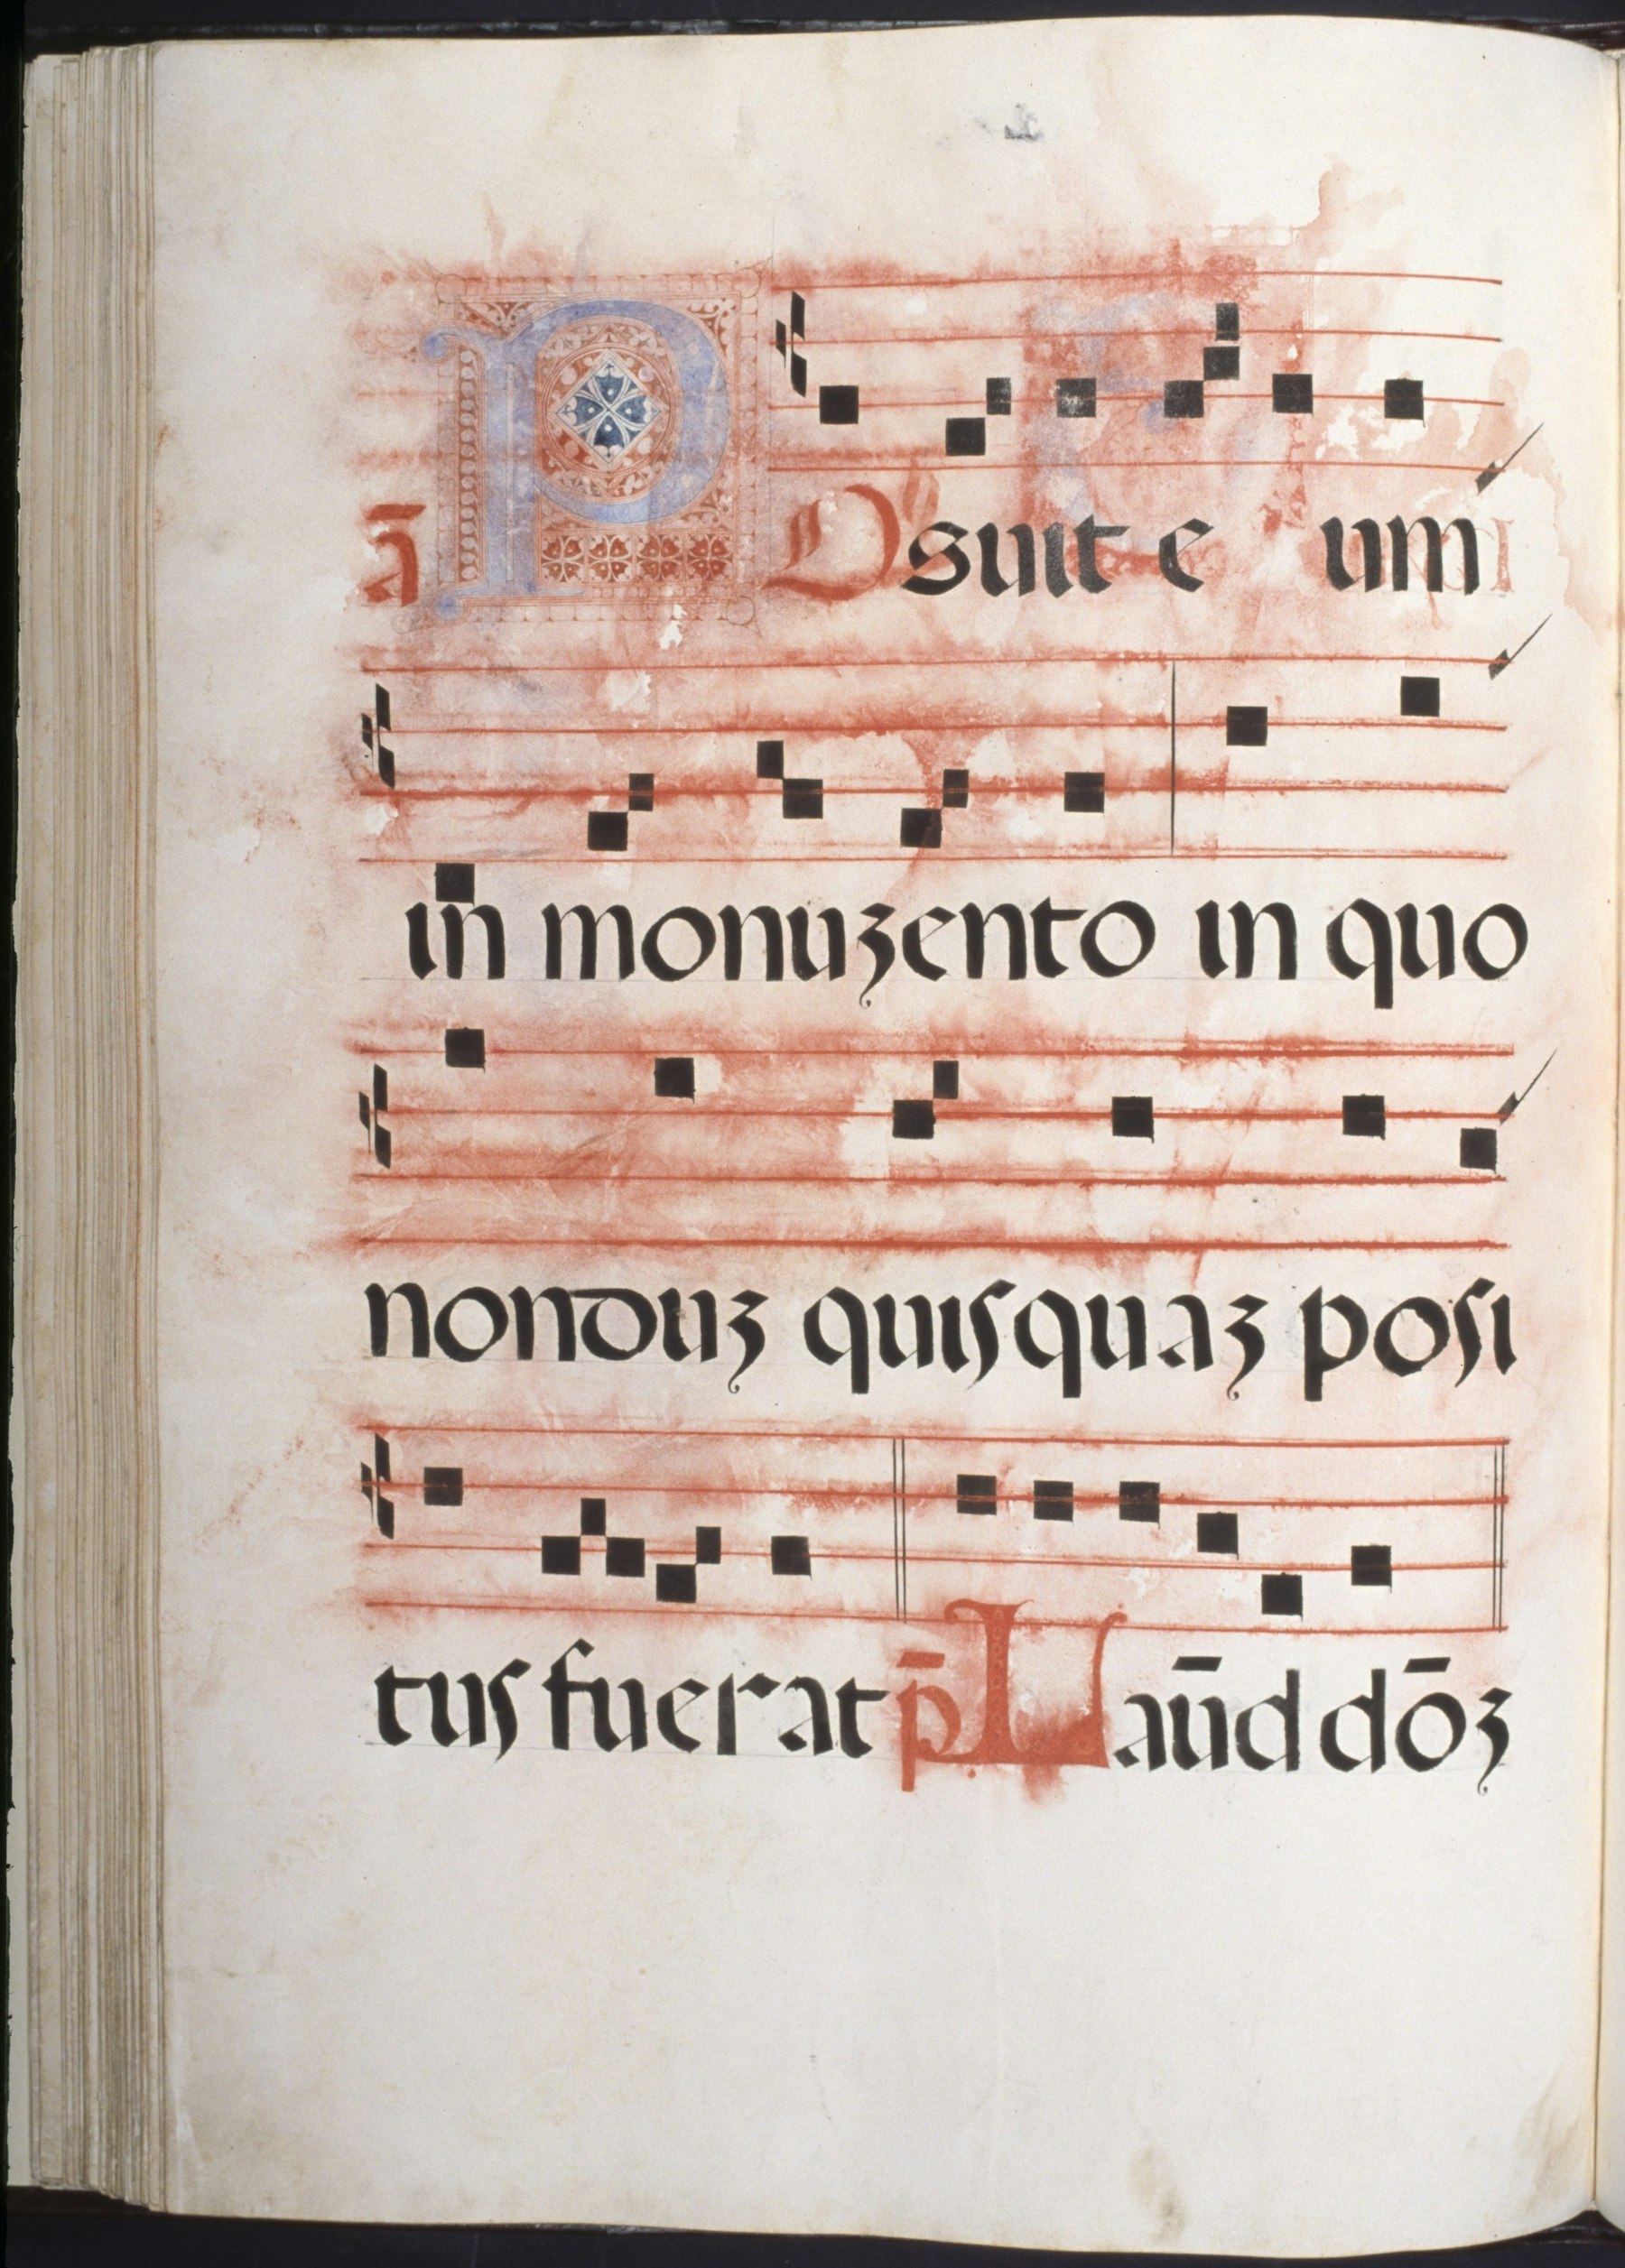 ā POsuit eum
in monuʒento in quo
nonduʒ quisquaʒ posi
tus fuerat p̄ Laūd dōʒ